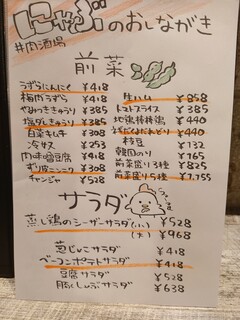 にゃぶのおしながき
#肉酒場
前菜
うずらにんにく ¥418
梅肉うずら ¥418
やみつききゅうり ¥385
塩ダレきゅうり ¥385
白菜キムチ ¥308
冷奴 ¥253
肉味噌豆腐 ¥418
ずり皮ニンニク ¥308
チャンジャ ¥528
生ハム ¥858
トマトスライス ¥385
地鶏棒棒鶏 ¥440
¥440
枝豆 ¥132
韓国のり ¥165
前菜盛り3種 ¥825
前菜盛り5種 ¥1,155
サラダ
蒸し鶏のシーザーサラダ(小) ¥528
(大) ¥968
葱じゃこサラダ ¥418
ベーコンポテトサラダ ¥418
豆腐サラダ ¥528
豚しゃぶサラダ ¥638